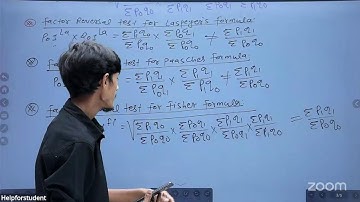 √ΣP₀q₀ ΣP₀q₁
factor Reversal test for Laspeyre's formula:
P₀₁ᴸᵃ × Q₀₁ᴸᵃ = ΣP₁q₀/ΣP₀q₀ × ΣP₀q₁/ΣP₀q₀ ≠ ΣP₁q₁/ΣP₀q₀
test for Paasche's formula:
P₀₁ = ΣP₁q₁/ΣP₀q₁ × ΣP₁q₁/ΣP₁q₀ ≠ ΣP₁q₁/ΣP₀q₀
fa test for Fisher formula
= √ΣP₁q₀/ΣP₀q₀ × ΣP₀q₁/ΣP₀q₀ × ΣP₁q₁/ΣP₀q₁ × ΣP₁q₁/ΣP₁q₀ = ΣP₁q₁/ΣP₀q₀
zoom
Helpforstudent